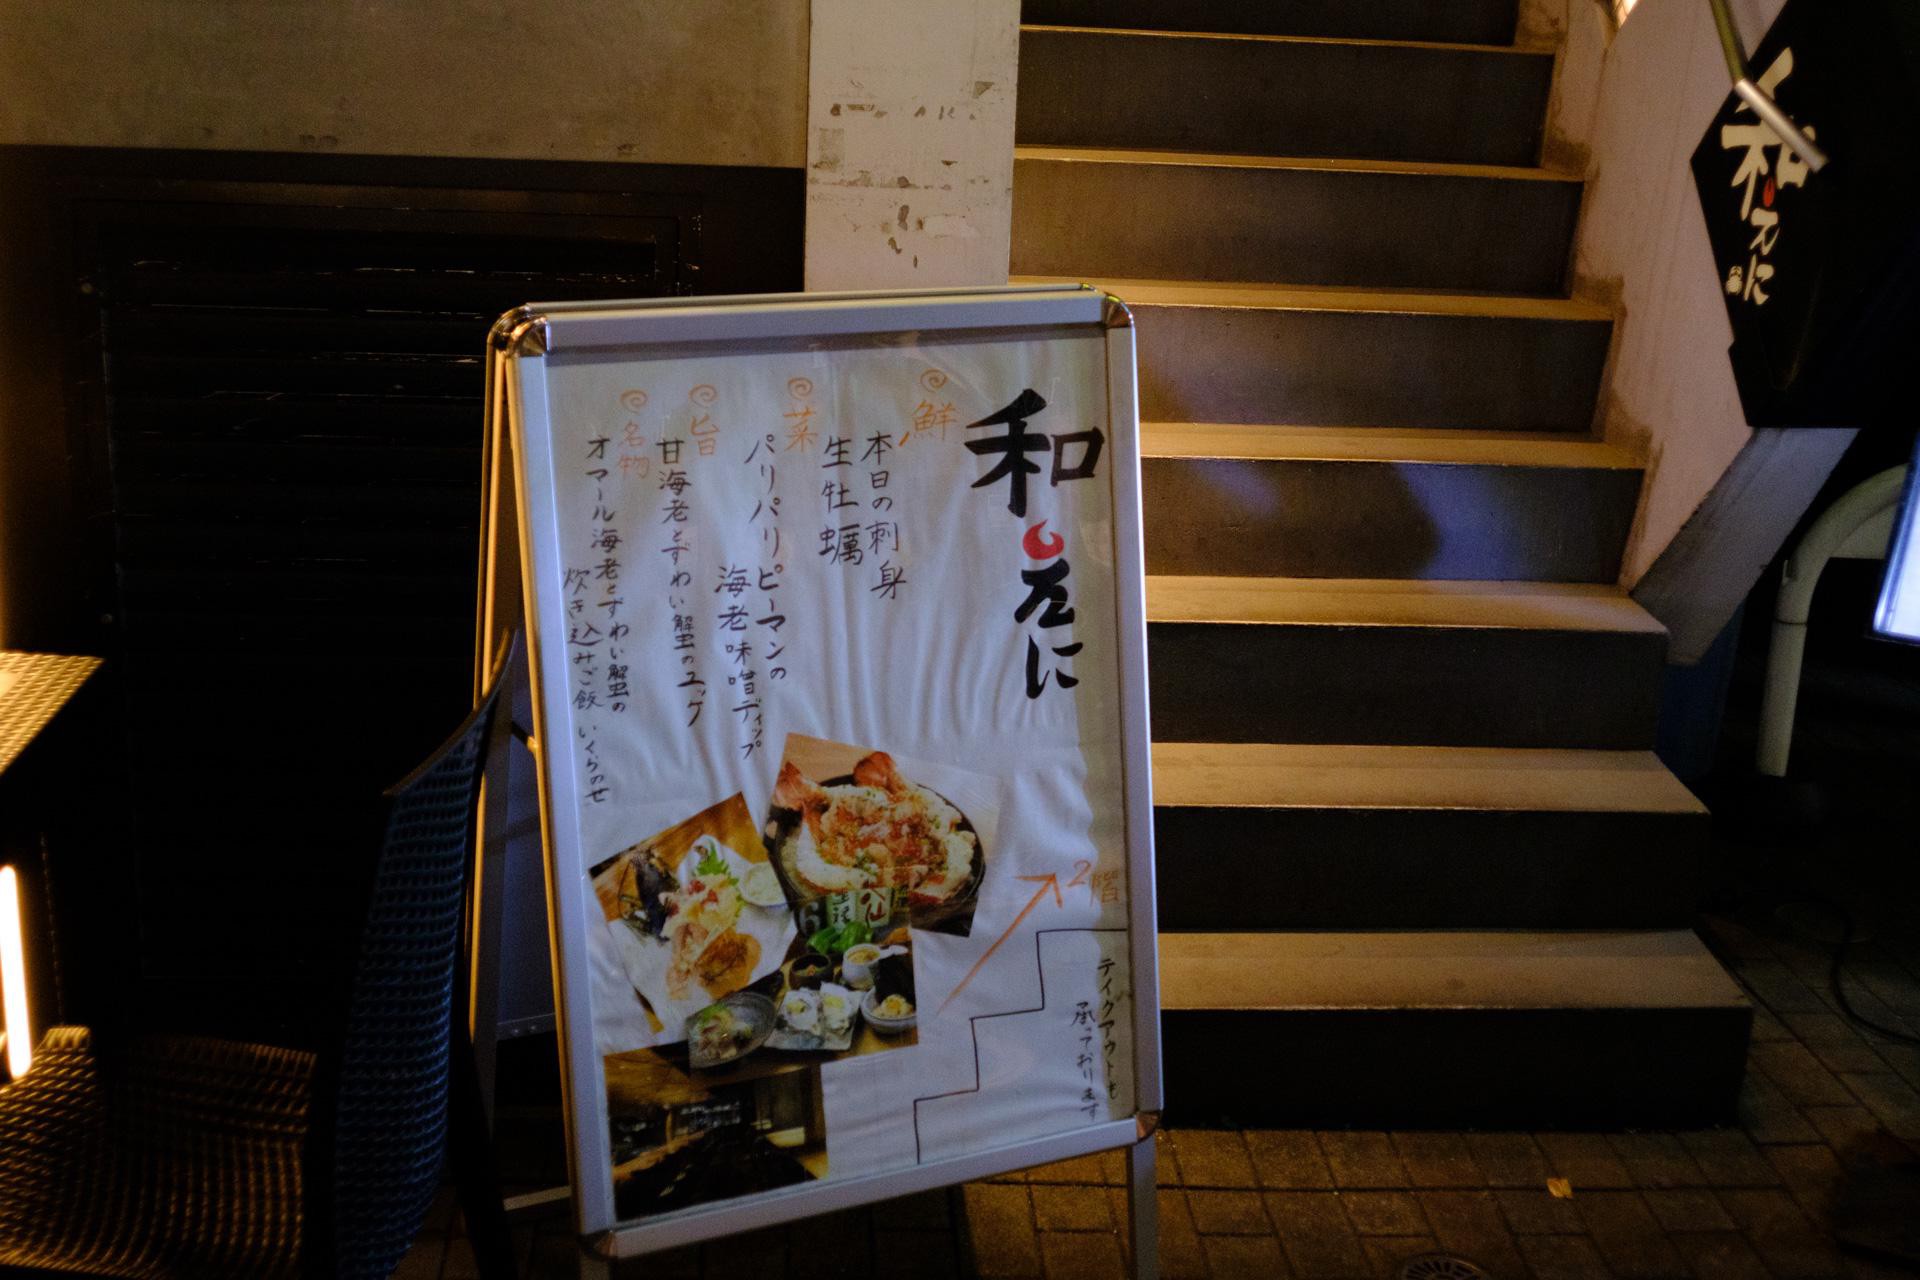 和えに
鮮
本日の刺身
生牡蠣
菜
パリパリピーマンの
海老味噌ディップ
旨
甘海老とずわい蟹のユッケ
名物
オマール海老とずわい蟹の
炊き込みご飯 いくらのせ
2階
テイクアウトも
承っております
八仙
和えに